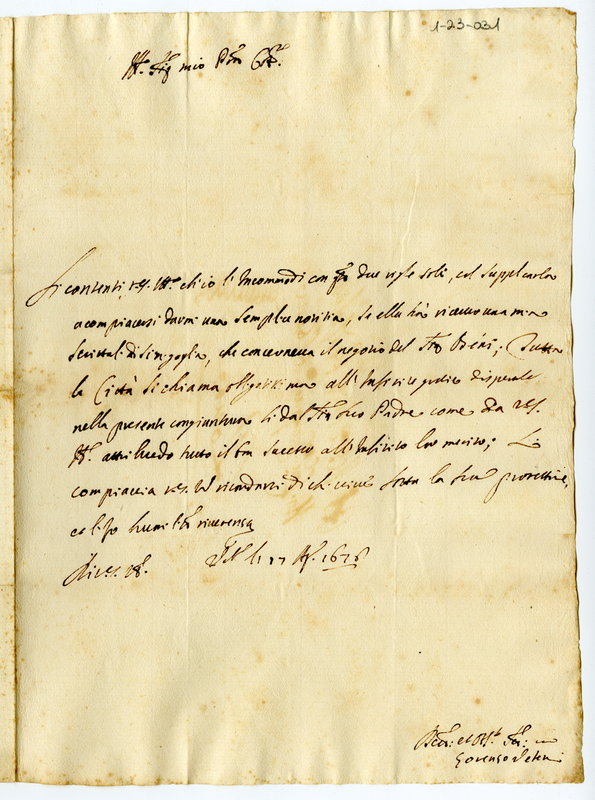 1-23-031
Ill.mo Sig. mio P.ron Col.mo
Si contenti V.S. Ill.ma ch'io l'Incommodi con q.te due righe sole, col supplicarla
a compiacersi darmi una semplice notitia, se ella hà ricevuo una mia
scrittali di Sinigaglia, che concerneva il negotio del Sig.
la Città si chiama obligatissima all'Infinite gratie dispensate
nella presente congiuntura sì dal Sig. suo Padre come da V.S.
Ill. attribuendo tutto il buon successo all'Infinito lor merito; La
compiaccia V.S. Ill. ricordarsi di chi vive sotto la sua protettione,
et li fo humiliss.a riverenza
Di V.S. Ill. li 17 1676
et Obl. Ser.
Lorenzo